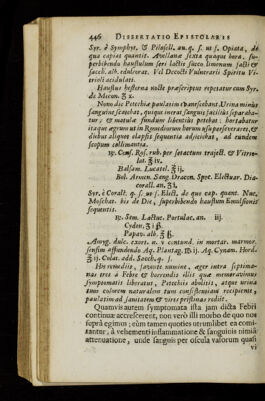 446 DISSERTATIO EPISTOLARIS
Syr. è Symphyt. & Pilosell. an. q. s. ut s. Opiata, de
qua capiat quantit. Avellanæ sexta quaque hora. su-
perbibendo haustulum seri lactis succo limonum facti &
sacch. alb. edulcorat. Vel Decocti Vulnerarii Spiritu Vi-
trioli acidulati.
Haustus hesterna nocte præscriptus repetatur cum Syr.
de Mecon. ℥x.
Nono die Petechiæ paulatim evanescebant. Urina minus
sanguine scatebat, quique inerat sanguis facilius separaba-
tur, & matulæ fundum libentius petebat: hortabatur
itaque ægrum ut in Remediorum horum usu perseveraret, &
diebus aliquot elapsis sequentia adjiciebat, ad eundem
scopum collimantia.
℞. Cons. Ros. rub. per setaceum traject. & Vitrio-
lat. ℥iv.
Balsam. Lucatel. ℥ij.
Bol. Armen. Sang. Dracon. Spec. Electuar. Dia-
corall. an. ʒi.
Syr. è Corall. q. s. ut s. Elect. de quo cap. quant. Nuc.
Moschat. bis de Die, superbibendo haustum Emulsionis
sequentis.
℞. Sem. Lactuc. Portulac. an. iij.
Cyden. ʒiß.
Papav. alb. ℥ß.
Amyg. dulc. excort. n. v contund. in mortar. marmor.
sensim affundendo Aq. Plantag. ℔ij. Aq. Cynam. Hord.
℥ij. Colat. add. Sacch. q. s.
His remediis, favente numine, æger intra septima-
nas tres à Febre & horrendis illis quæ memoravimus
Symptomatis liberatus, Petechiis abolitis, atque urina
suum colorem naturalem tum consistentiam recipiente,
paulatim ad sanitatem & vires pristinas rediit.
Quamvis autem symptomata ista jam dicta Febri
continuæ accresserent, non verò illi morbo de quo nos
suprà egimus; eùm tamen quoties utrumlibet ea comi-
tantur, à vehementi inflammatione & sanguinis nimiâ
attenuatione, unde sanguis per oscula valorum quasi
vi